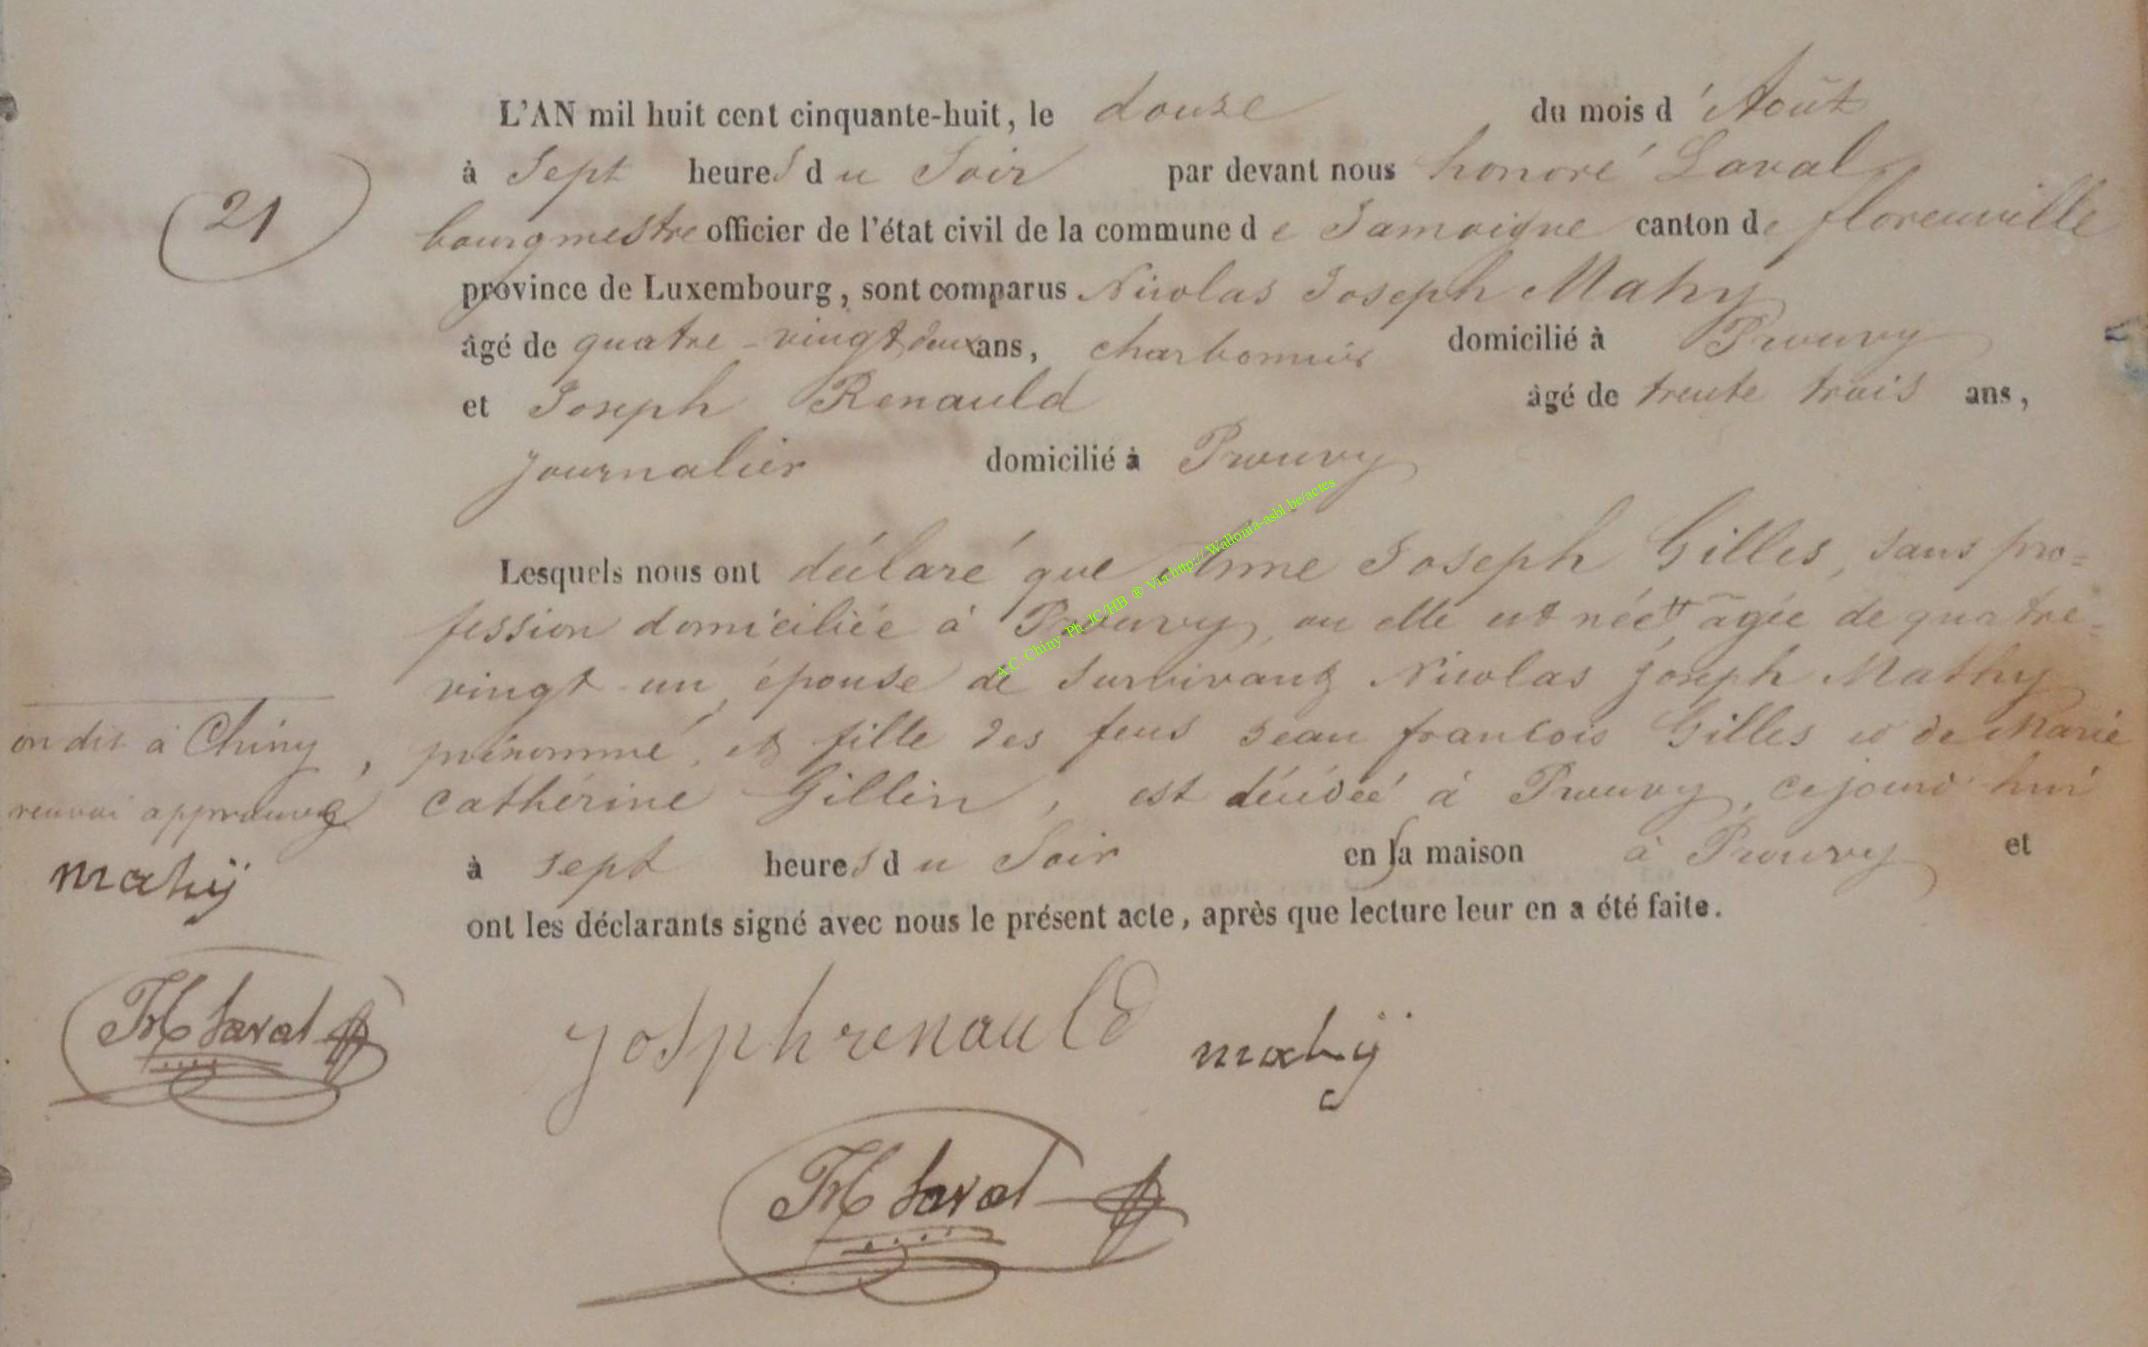 L'AN mil huit cent cinquante-huit, le douze du mois d'Août
à Sept heures du Soir par devant nous honoré Laval
21
bourgmestre officier de l'état civil de la commune de Jamoigne canton de florenville
province de Luxembourg, sont comparus Nicolas Joseph Mahy
âgé de quatre-vingt deux ans, charbonnier domicilié à Prouvy
et Joseph Renauld âgé de trente trois ans,
journalier domicilié à Prouvy
Lesquels nous ont déclaré que Anne Joseph Gilles, sans pro=
fession domiciliée à Prouvy, ou elle est née, âgée de quatre=
vingt-un, épouse de survivant Nicolas Joseph Mathy
prénommé, et fille des feus Jean françois Gilles et de Marie
Cathérine Gillin, est décédée à Prouvy, cejourd'hui
à sept heures du Soir en sa maison à Prouvy et
ont les déclarants signé avec nous le présent acte, après que lecture leur en a été faite.
on dit à Chiny,
renvoi approuvé
mahÿ
FH Laval
Josph renauld mahÿ
FH Laval
A.C. Chiny Ph. JC/HB ® Via http://Wallonia-asbl.be/actes